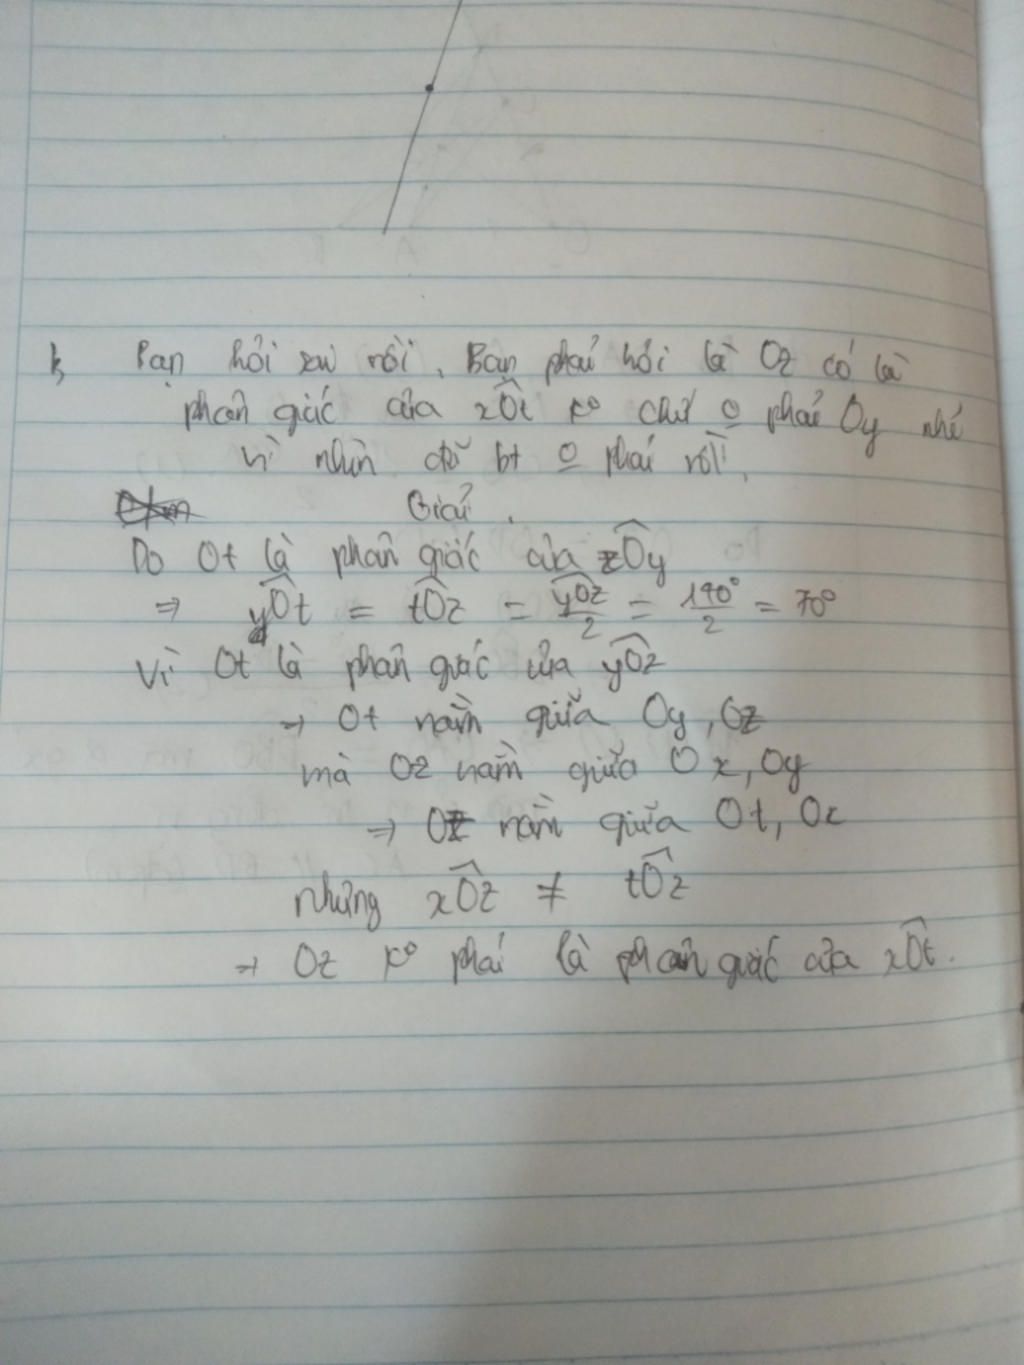 b, Bạn hỏi sai rồi. Bạn phải hỏi là Oz có là
phân giác của xÔt ko chứ o phải Oy nhé
vì nhìn đã bt o phải rồi.
Giải.
Do Ot là phân giác của zÔy
⇒ yÔt = tÔz = yÔz/2 = 140°/2 = 70°
Vì Ot là phân giác của yÔz
→ Ot nằm giữa Oy, Oz
mà Oz nằm giữa Ox, Oy
⇒ Oz nằm giữa Ot, Ox
nhưng xÔz ≠ tÔz
→ Oz ko phải là phân giác của xÔt.